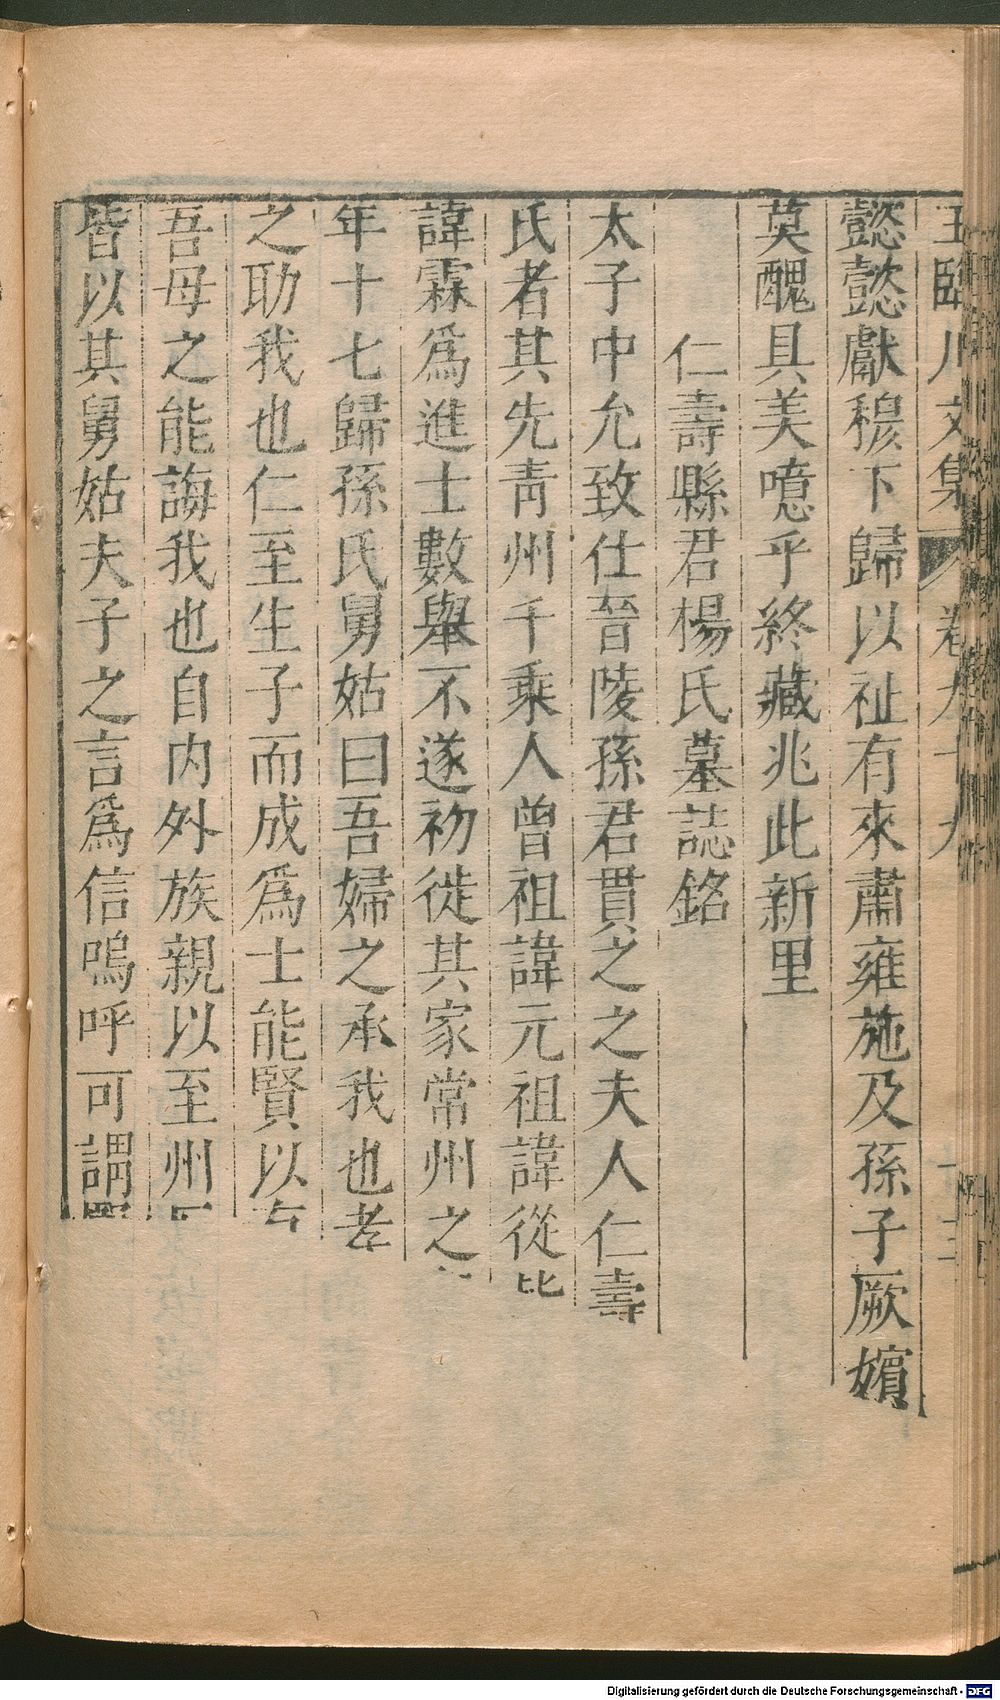 王臨川文集 卷九十九
懿懿獻穆下歸以祉有來肅雍施及孫子厥嬪
莫醜具美噫乎終藏兆此新里
仁壽縣君楊氏墓誌銘
太子中允致仕晉陵孫君貫之之夫人仁壽
氏者其先青州千乗人曾祖諱元祖諱從比
諱霖爲進士數舉不遂初徙其家常州之
年十七歸孫氏舅姑曰吾婦之承我也孝
之助我也仁至生子而成爲士能賢以有
吾母之能誨我也自内外族親以至州
皆以其舅姑夫子之言爲信嗚呼可謂
Digitalisierung gefördert durch die Deutsche Forschungsgemeinschaft - DFG